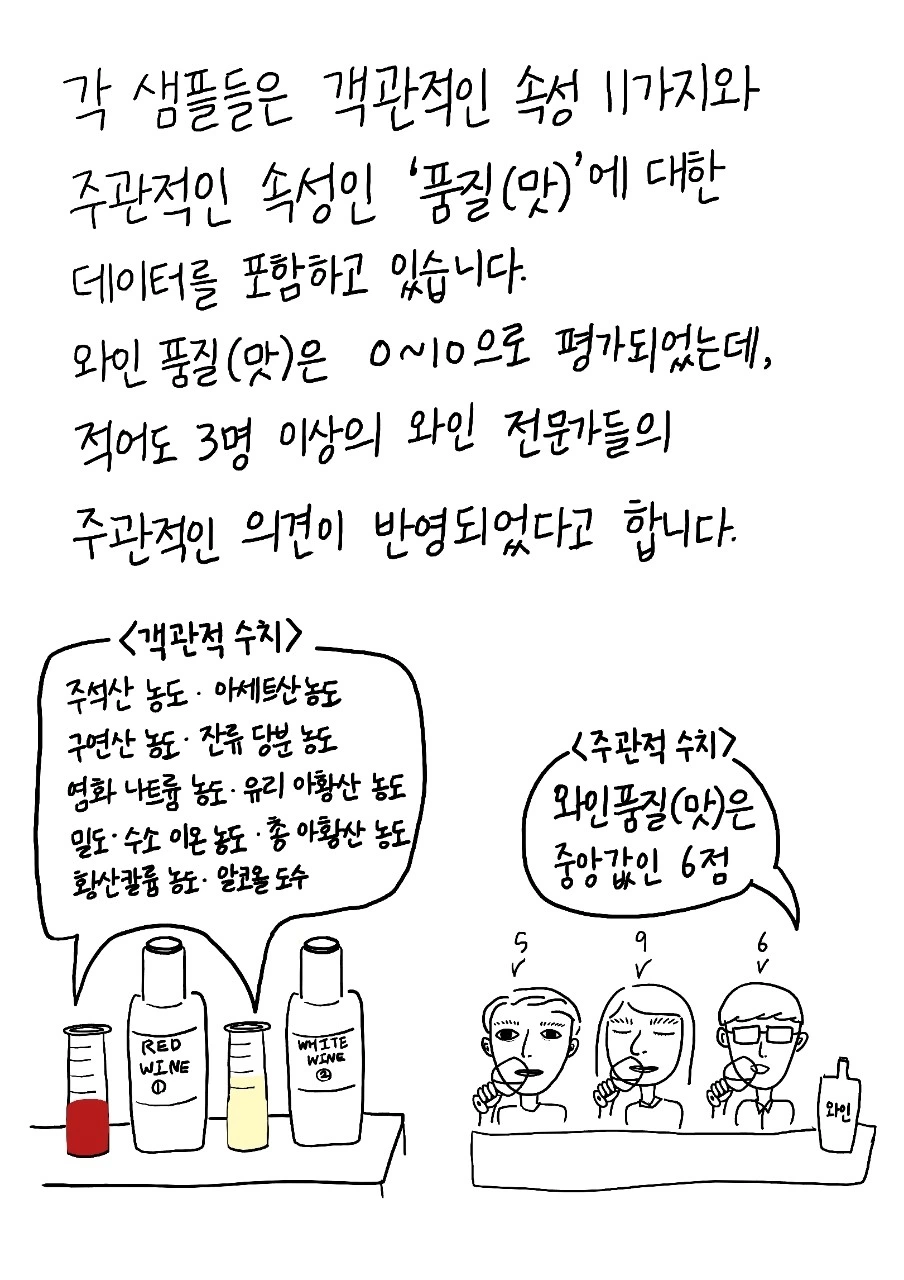 각 샘플들은 객관적인 속성 11가지와
주관적인 속성인 '품질(맛)'에 대한
데이터를 포함하고 있습니다.
와인 품질(맛)은 0~10으로 평가되었는데,
적어도 3명 이상의 와인 전문가들의
주관적인 의견이 반영되었다고 합니다.
<객관적 수치>
주석산 농도 · 아세트산 농도
구연산 농도 · 잔류 당분 농도
염화 나트륨 농도 · 유리 아황산 농도
밀도 · 수소 이온 농도 · 총 아황산 농도
황산칼륨 농도 · 알코올 도수
<주관적 수치>
와인품질(맛)은
중앙값인 6점
5 9 6
RED
WINE
①
WHITE
WINE
②
와인